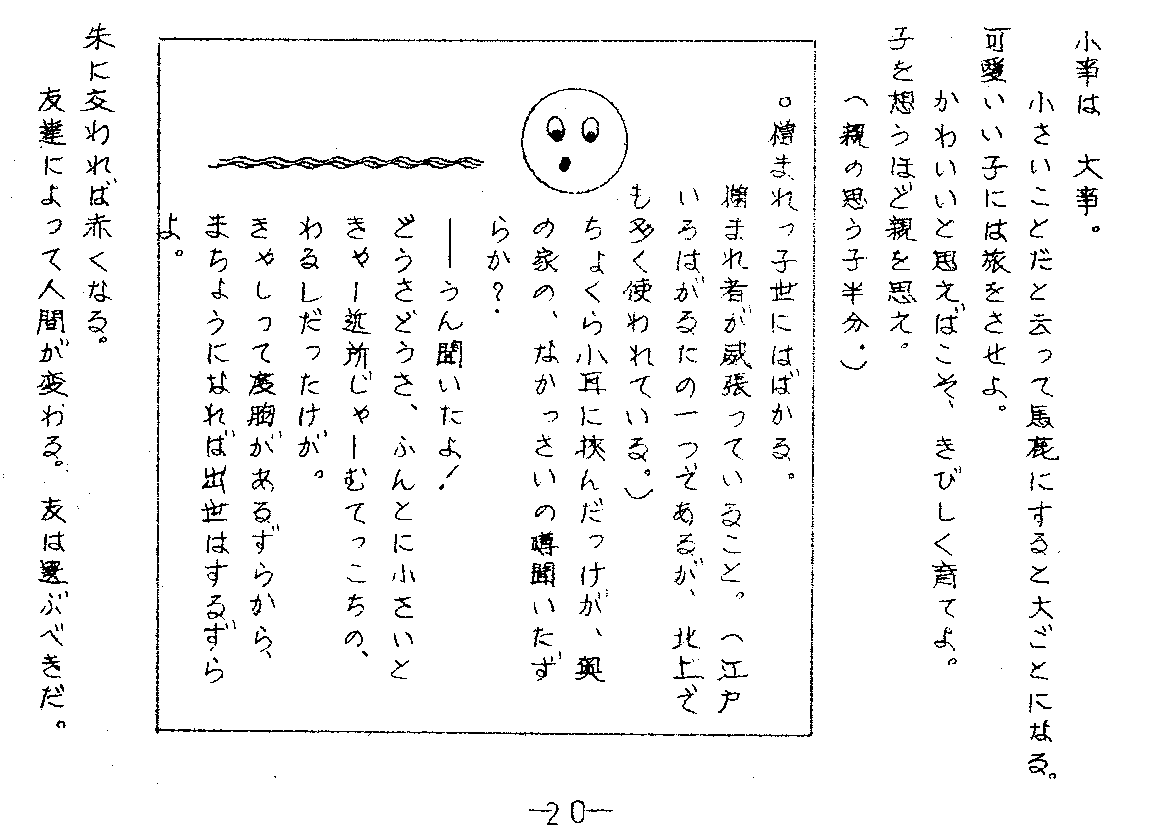 小事は 大事。
小さいことだと云って馬鹿にすると大ごとになる。
可愛いい子には旅をさせよ。
かわいいと思えばこそ、きびしく育てよ。
子を想うほど親を思え。
(親の思う子半分。)
○憎まれっ子世にはばかる。
憎まれ者が威張っていること。(江戸
いろはがるたの一つであるが、北上で
も多く使われている。)
ちょくら小耳に挟んだっけが、奥
の家の、なかっさいの噂聞いたず
らか?
——うん聞いたよ!
どうさどうさ、ふんとに小さいと
きゃー近所じゃーむてっこちの、
わるしだったけが。
きゃしって度胸があるずらから、
まちょうになれば出世はするずら
よ。
朱に交われば赤くなる。
友達によって人間が変わる。友は選ぶべきだ。
—20—